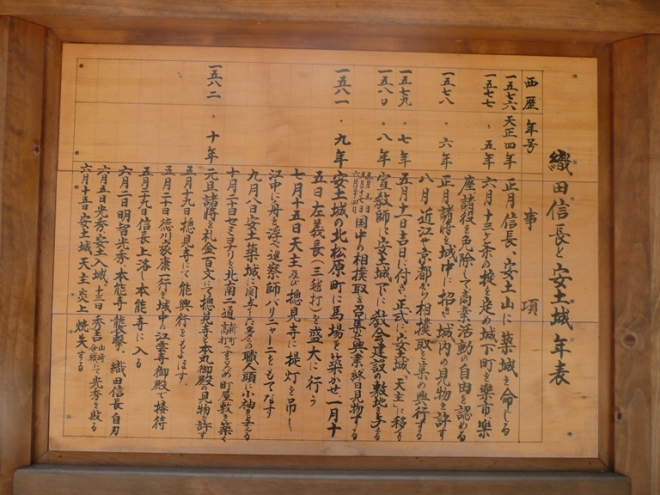 織田信長と安土城年表
西歴 年号 事項
一五七六 天正四年 正月 信長、安土山に築城を命じる
一五七七 〃 五年 六月 十三ケ条の掟を定め城下町を樂市樂
座諸役を免除して商業活動の自由を認める
一五七八 〃 六年 正月 諸將を城中に招き城内の見物を許す
八月 近江や京都から相撲取を集め興行する
一五七九 〃 七年 五月十一日吉日に付き正式に安土城天主に移る
一五八〇 〃 八年 宣教師に安土城下に教会建設の敷地を与える
国中の相撲取を召集し興業終日見物する
一五八一 〃 九年 安土城の北松原町に馬場を築かせ一月十
五日左義長(三毬打)を盛大に行う
七月十五日天主及び摠見寺に提灯を吊し
江中に舟を浮べ巡察師バリニャーニをもてなす
九月八日安土築城に関与した多くの職人頭に小袖を与える
十月二十日
北南二通
町屋敷を築く
一五八二 〃 十年 元旦諸將を礼金百文にて摠見寺と本丸御殿の見物を許す
五月十九日摠見寺にて能興行をもよほす
五月二十日徳川家康一行を城中の江雲寺御殿で接待
五月二十九日信長上洛し本能寺に入る
六月二日明智光秀、本能寺を襲撃、織田信長自刃
六月五日光秀、安土入城、十三日秀吉山崎合戦にて光秀を敗る
六月十五日安土城天主炎上焼失する